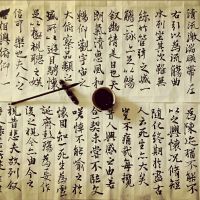 清流激湍暎帶左
右引以為流觴曲
水列坐其次雖無
絲竹管弦之盛一
觴一詠亦足以暢
敘幽情是日也天
朗氣清惠風和
暢仰觀宇宙之
大俯察品類之
盛所以遊目騁懷
足以極視聽之娛
信可樂也夫人之
相與俯仰
為陳迹猶不能不
以之興懷況脩短
隨化終期於盡古
人云死生亦大矣
豈不痛哉每攬
昔人興感之由若
合一契未嘗不臨文
嗟悼不能喻之於
懷固知一死生為虛
誕齊彭殤為妄作
後之視今亦由今之
視昔悲夫故列敘